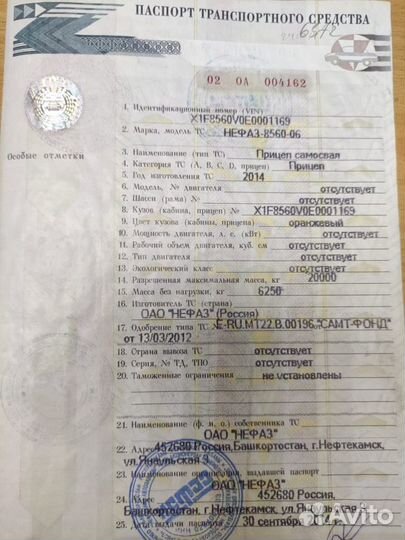 ПАСПОРТ ТРАНСПОРТНОГО СРЕДСТВА
02 ОА 004162
1. Идентификационный номер (VIN)
X1F8560V0E0001169
2. Марка, модель ТС НЕФАЗ-8560-06
Особые отметки
3. Наименование (тип ТС) Прицеп самосвал
4. Категория ТС (А, В, С, D, прицеп) Прицеп
5. Год изготовления ТС 2014
6. Модель, № двигателя отсутствует
7. Шасси (рама) № отсутствует
8. Кузов (кабина, прицеп) № X1F8560V0E0001169
9. Цвет кузова (кабины, прицепа) оранжевый
10. Мощность двигателя, л. с. (кВт) отсутствует
11. Рабочий объем двигателя, куб. см отсутствует
12. Тип двигателя отсутствует
13. Экологический класс отсутствует
14. Разрешенная максимальная масса, кг 20000
15. Масса без нагрузки, кг 6250
16. Изготовитель ТС (страна)
ОАО "НЕФАЗ" (Россия)
17. Одобрение типа ТС № E-RU.МТ22.В.00196."САМТ-ФОНД"
от 13/03/2012
18. Страна вывоза ТС отсутствует
19. Серия, № ТД, ТПО отсутствует
20. Таможенные ограничения не установлены
21. Наименование (ф. и. о.) собственника ТС
ОАО "НЕФАЗ"
22. Адрес 452680 Россия,Башкортостан, г.Нефтекамск,
ул.Янаульская 3
23. Наименование организации, выдавшей паспорт
ОАО "НЕФАЗ"
24. Адрес 452680 Россия,
Башкортостан, г.Нефтекамск, ул.Янаульская 3
25. Дата выдачи паспорта 30 сентября
Avito